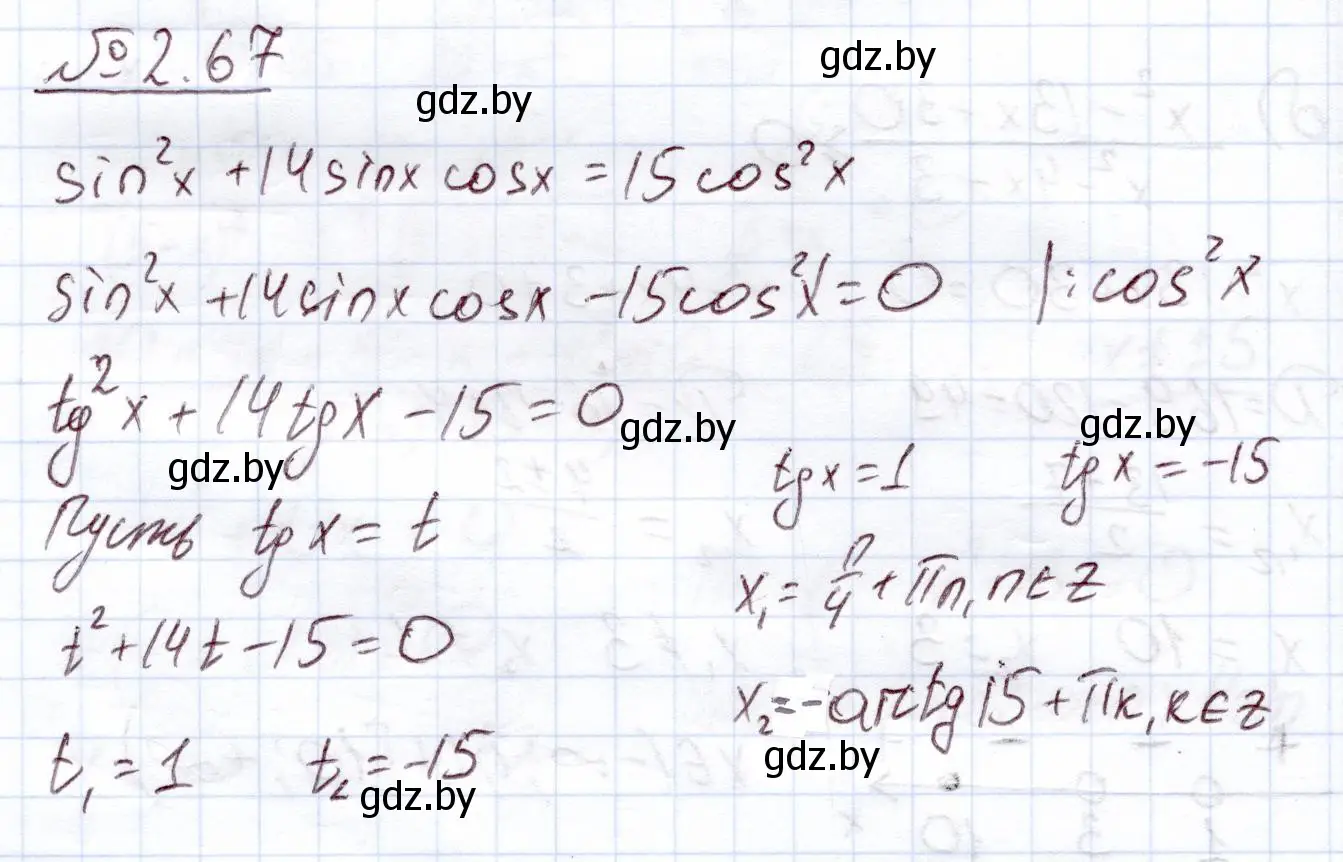 № 2.67
gdz.by
gdz.by
sin²x + 14 sinx cosx = 15 cos²x
sin²x + 14 sinx cosx - 15 cos²x = 0 |: cos²x
tg²x + 14 tgx - 15 = 0
gdz.by
gdz.by
gdz.by
Пусть tg x = t
t² + 14t - 15 = 0
t₁ = 1 t₂ = -15
gdz.by
tg x = 1 tg x = -15
x₁ = π/4 + πn, n ∈ Z
x₂ = -arctg 15 + πk, k ∈ Z
gdz.by